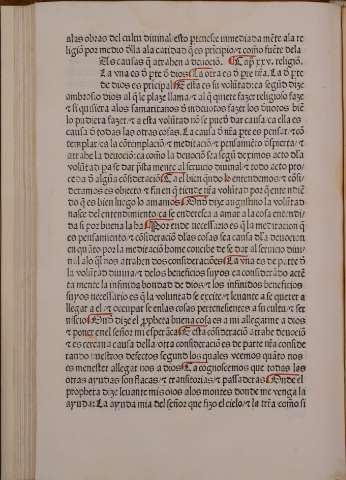 alas obras del cultu diuinal: esto ptenesce inmediada mēte ala re
ligiō por medio dlla ala caridad q̄ es p̄ncipio: ⁊ como fuēte dela
Las causas q̄ atraben a deuociō. Capº xxv. religiō.
La vna es d̄ pte d̄ dios La otra es d̄ pte nr̄a. La d̄ pte
de dios es pncipal Esta es su volūtad: ca segūd dize
ambrosio dios al q̄ le plaze llama: ⁊ al q̄ quiere fazer religioso faze
⁊ si quisiera alos samaritanos d̄ indeuotos fazer los deuotos biē
lo pudiera fazer: ⁊ a esta volūtad nō se puede dar causa ca ella es
causa d̄ todas las otras cosas. La causa d̄ nr̄a pte es pensar: ⁊ cō
templar: ca la cōtemplaciō: ⁊ meditaciō: ⁊ pensamiēto dspierta: ⁊
atrabe la deuociō: ca como la deuociō sea segū deximos acto dla
volūtad pa se dar pstamente al seruicio diuinal: ⁊ todo acto pro
cede d̄ algūa cōsideraciō Ca el bien quādo lo entendemos: ⁊ cōsi
deramos es objecto: ⁊ fin en q̄ tiende nr̄a volūtad por q̄ entendiē
do q̄ es bien luego lo amamos Onde dize augustino la volūtad
nasce del entendimiento: ca se endereça a amar ala cosa entendi
da si por buena la ha Por ende necessario es q̄ la meditacion q̄
es pensamiento: ⁊ cōsideraciō dlas cosas sea causa dla deuocion
en quāto por la meditaciō home concibe de se dar al seruicio diui
nal alo q̄l nos atraben dos cōsideraciones La vna es de parte d̄
la volūtad diuina: ⁊ delos beneficios suyos ca considerādo actē
ta mente la infinida bondad de dios: ⁊ los infinidos beneficios
suyos necessario es q̄ la voluntad se excite: ⁊ leuante a se querer a
llegar a el: ⁊ occupar se enlas cosas pertenescientes a su cultu: ⁊ ser
uicio Onde dize el ppheta buena cosa es a mi allegarme a dios
⁊ poner en el señor mi esperāça Esta cōsideraciō atrabe deuociō
⁊ es cercana causa della: otra consideraciō es de parte nr̄a conside
rando nuestros defectos segund los quales veemos quāto nos
es menester allegar nos a dios Ca cognoscemos que todas las
otras ayudas son flacas: ⁊ transitorias: ⁊ passaderas Onde el
propheta dize leuante mis ojos alos montes donde me venga la
ayuda: La ayuda mia del señor que fizo el cielo: ⁊ la trr̄a: como si